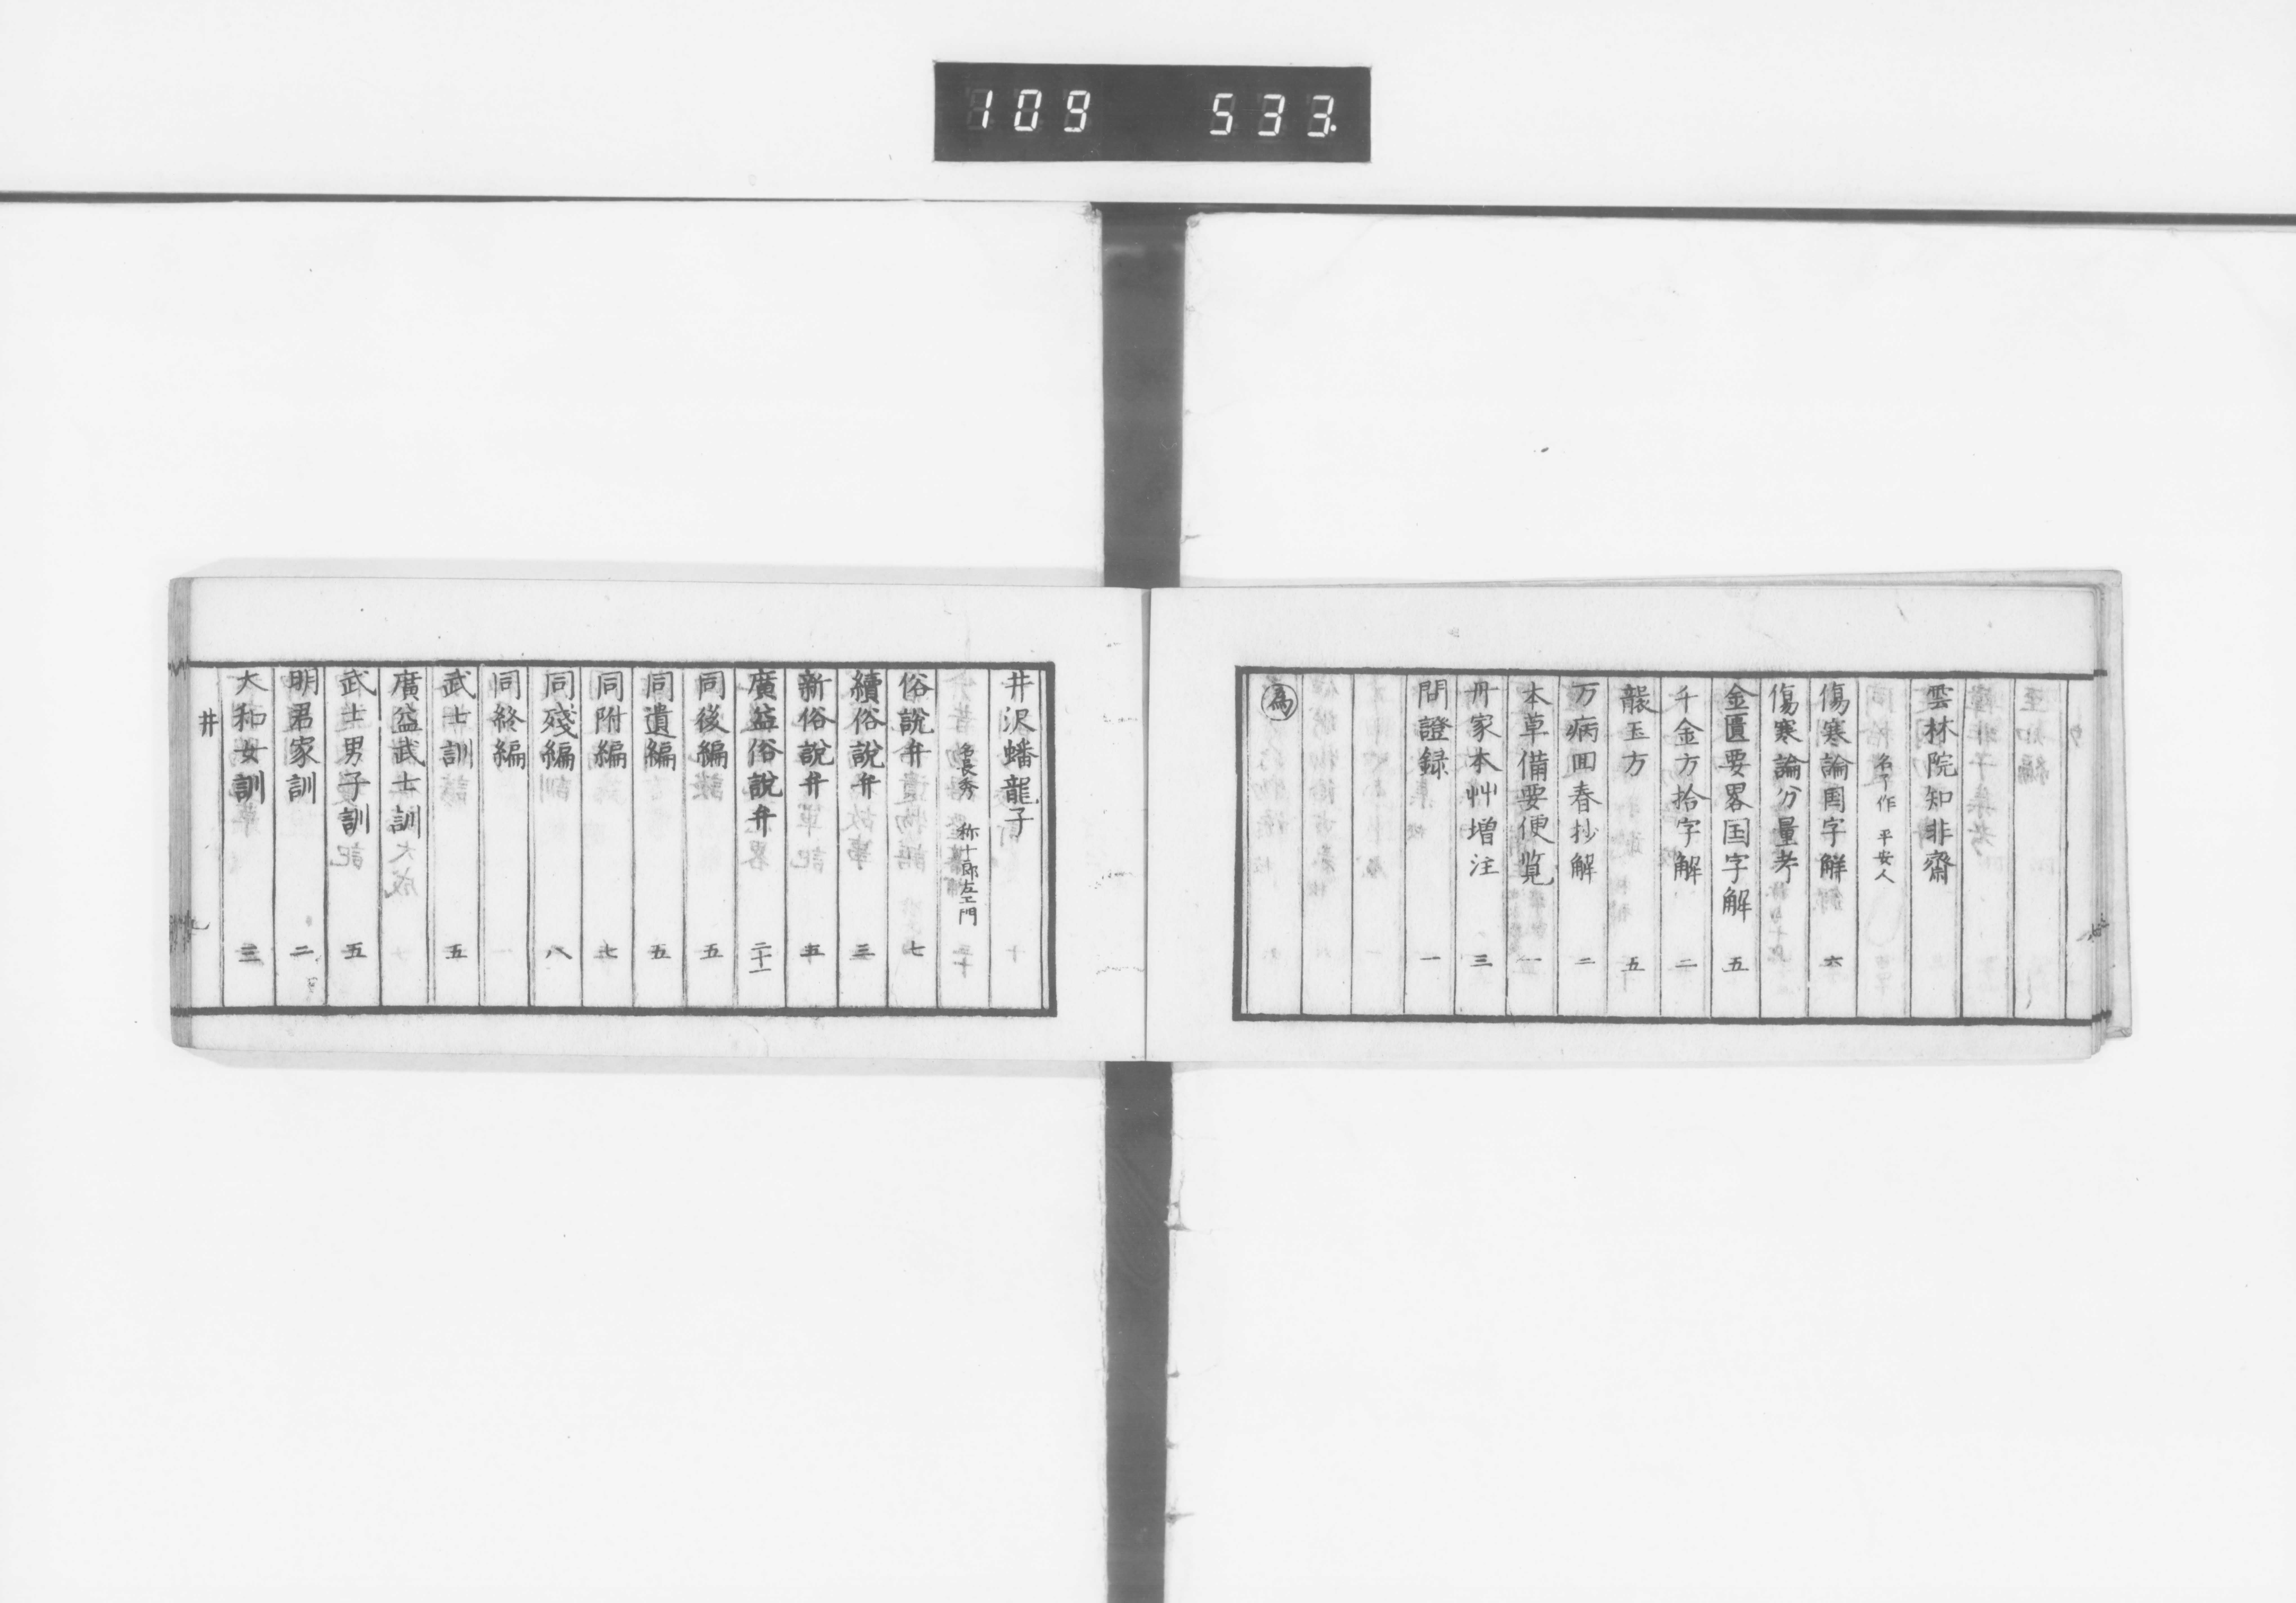 109 533.
雲林院知非齋
名了作 平安人
傷寒論国字解 六
傷寒論分量考
金匱要畧国字解 五
千金方拾字解 二
襲玉方 五
万病回春抄解 二
本草備要便覧 一
丹家本艸増注 三
問證録 一
為
井沢蟠龍子
名長秀 称十郎左エ門
俗說弁 七
續俗說弁 三
新俗說弁 五
廣益俗說弁 二十一
同後編 五
同遺編 五
同附編 七
同殘編 八
同終編
武士訓 五
廣益武士訓
武士男子訓 五
明君家訓 二
大和女訓 三
井